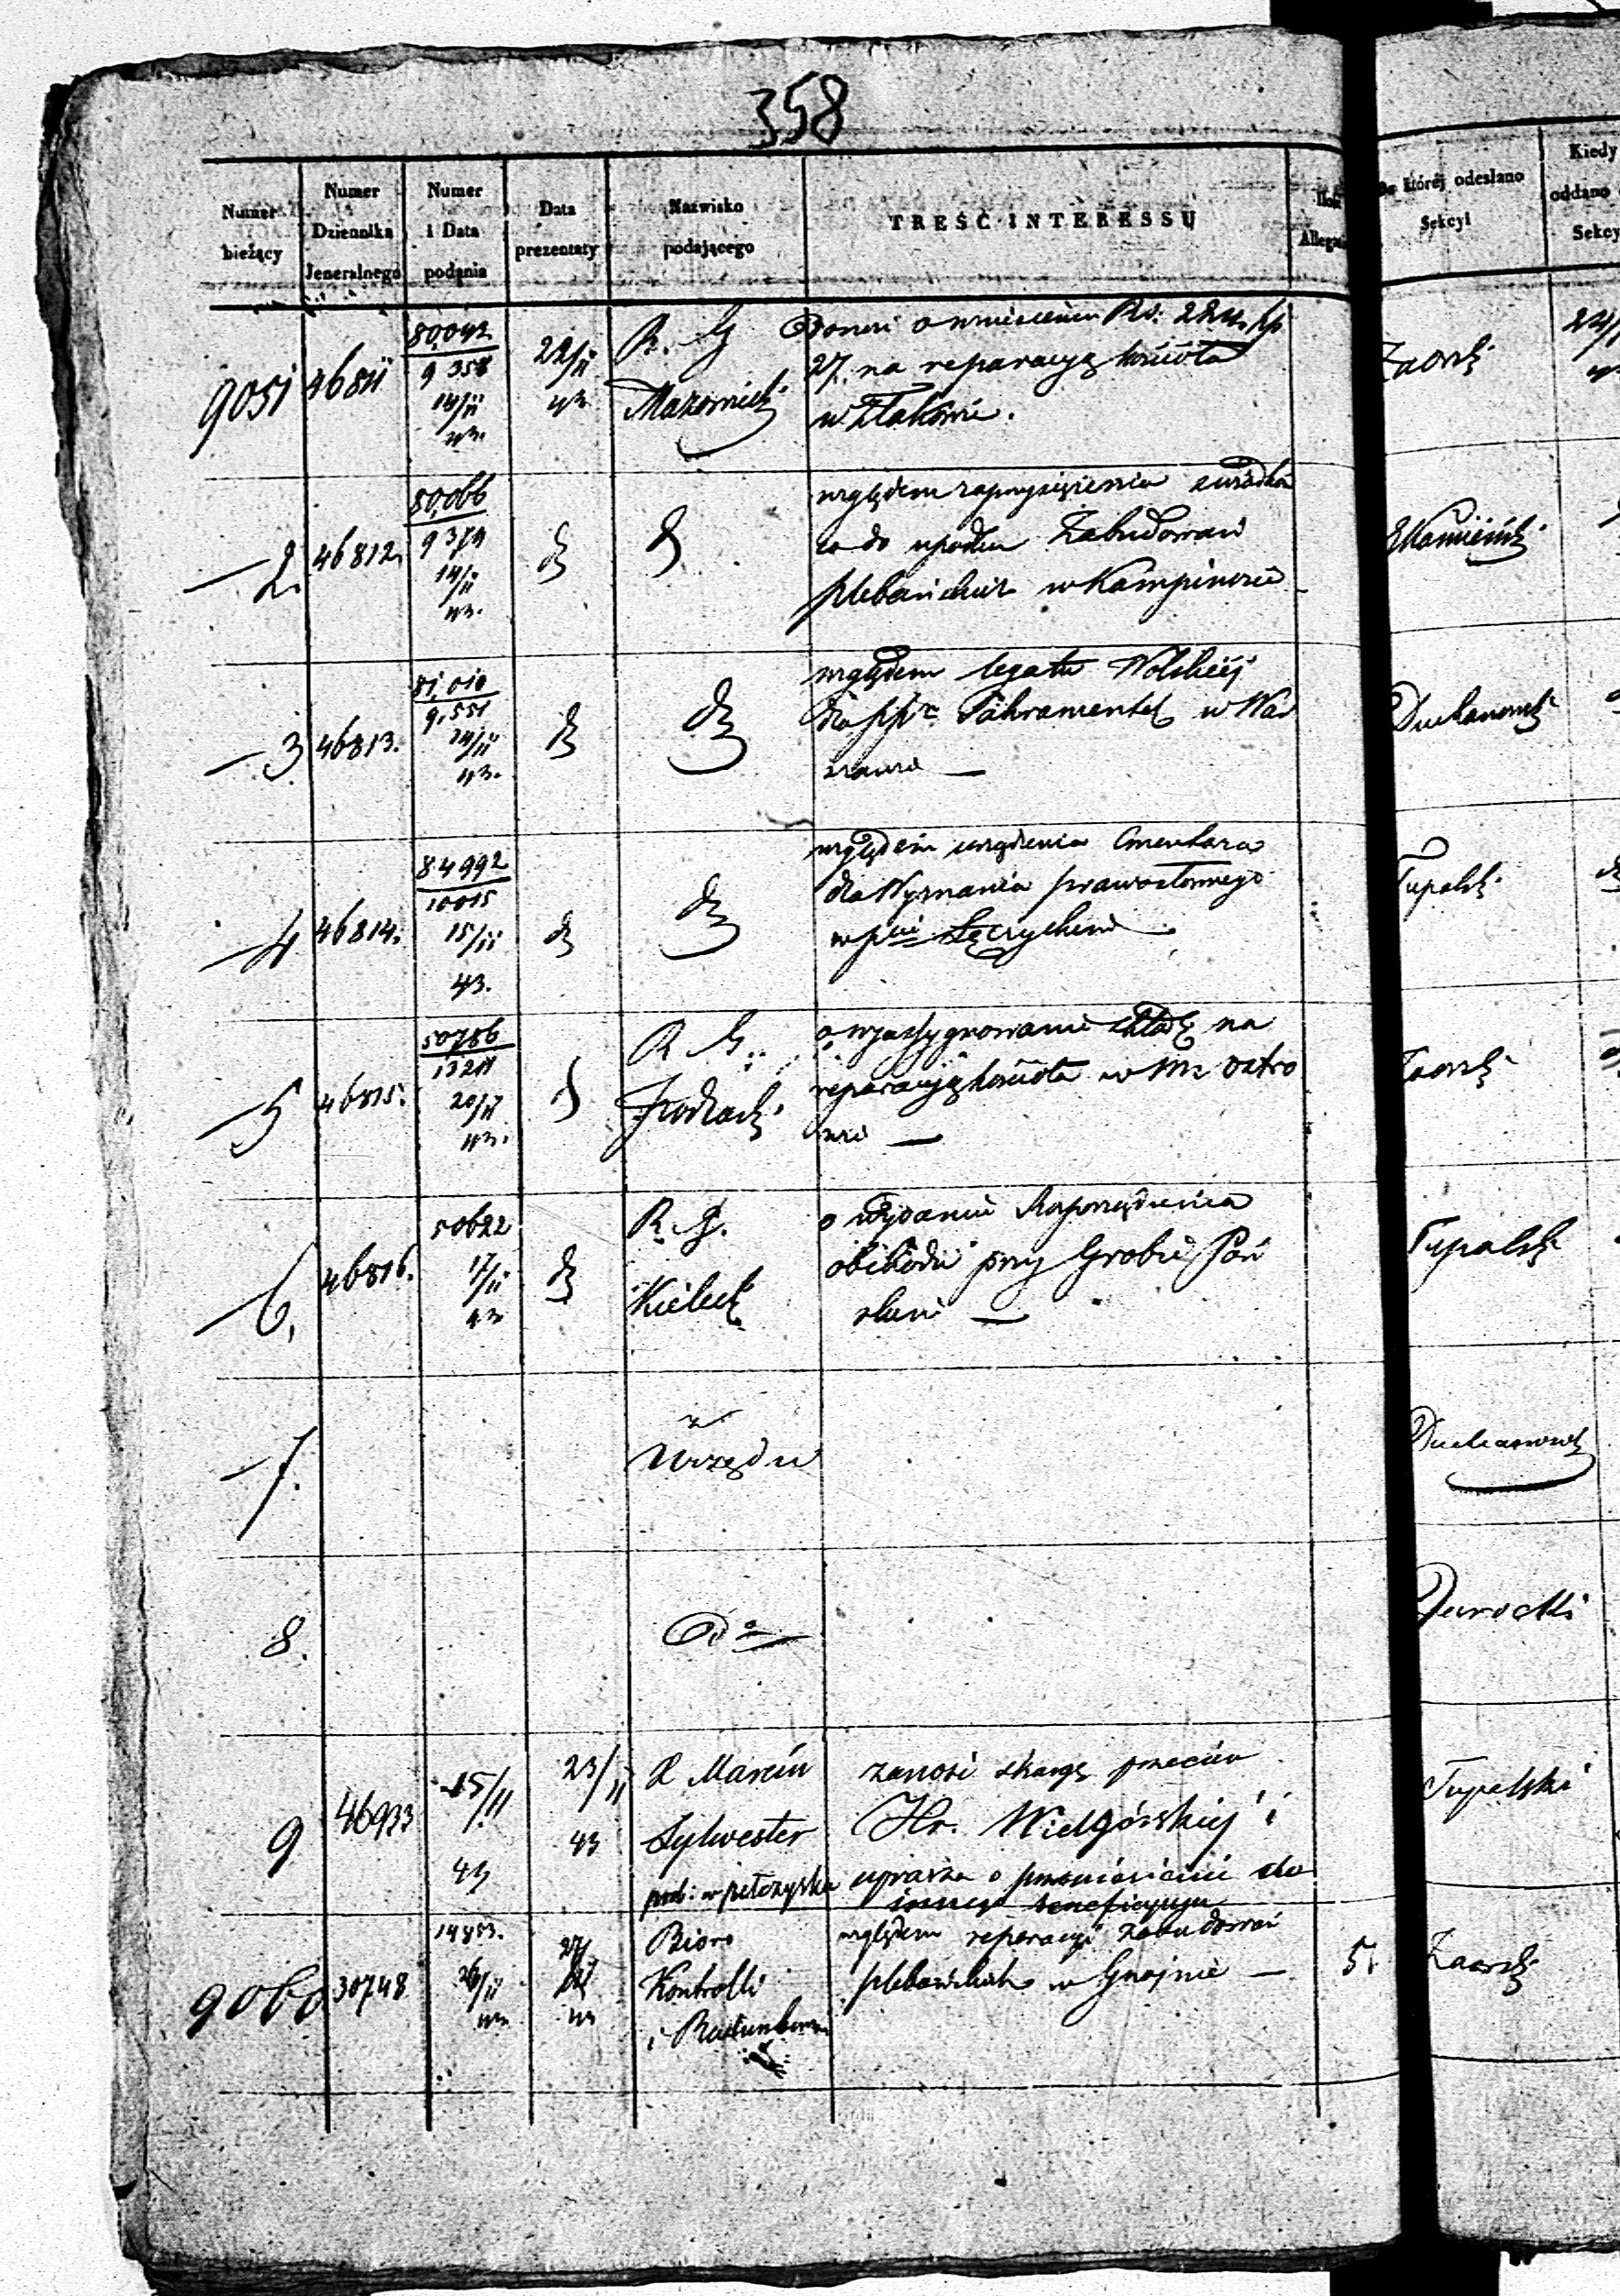 358
Numer bieżący
Numer Dziennika Jeneralnego
Numer i Data podania
Data prezentaty
Nazwisko podającego
TREŚĆ INTERESSU
Ilość Allegat
Do której odesłano Sekcyi
Kiedy oddano Sekcy
9051 46811 80,042 9358 14/11 43. 22/11 43 R. G. Mazowiecki
Donosi o wniesieniu Rs: 224 kp
27. na reparacyą kościoła
w Złakowie.
Zaorski
24/
2. 46812. 80,066 9379 14/11 43. d d
względem zaprzysiężenia świadków
co do upadku Zabudowań
plebańskich w Kampinosie
3 46813. 81,010 9,551 14/11 43. d d
względem legatu Wolskiej
dla pp. Sakramentek w War
szawie —
Duchanowski
4 46814. 84992 10015 15/11 43. d d
względem urządzenia Cmentarza
dla Wyznania prawosławnego
w pcie Łęczyckim
Tupalski
5 46815. 50786 13211 20/11 43. d R. G. Podlaski
o wyassygnowanie składki na
reparacyę kościoła w m. Ostro
wie —
Zaorski
6. 46816. 50622 17/11 43 d R. G. Kielecki
o wydanie Rozporządzenia
obchodu przy Grobie Pań
skim —
Tupalski
7. z Urzędu
Duchanowski
8. Do
Durocki
9 46933 15/11 43 23/11 43 X Marcin Sylwester prob: w pełczyska
zanosi skargę przeciw
Hr. Wielgórskiej i
uprasza o przeniesienie do
innego beneficyjum
Tupalski
9060 30748 14853. 26/11 43 27/11 43 Bióro Kontrolli i Rachunkowości
względem reperacyi zabudowań
plebańskich w Gnojnie — 5.
Zaorski